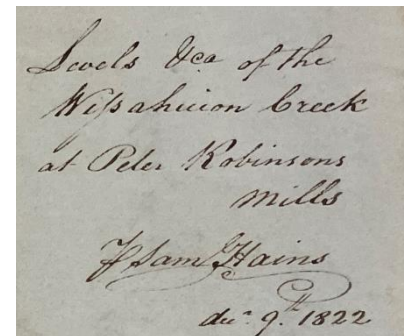 Levels &ca of the
Wissahicion Creek
at Peter Robinsons
Mills
Sam Hains
decr 9th 1822